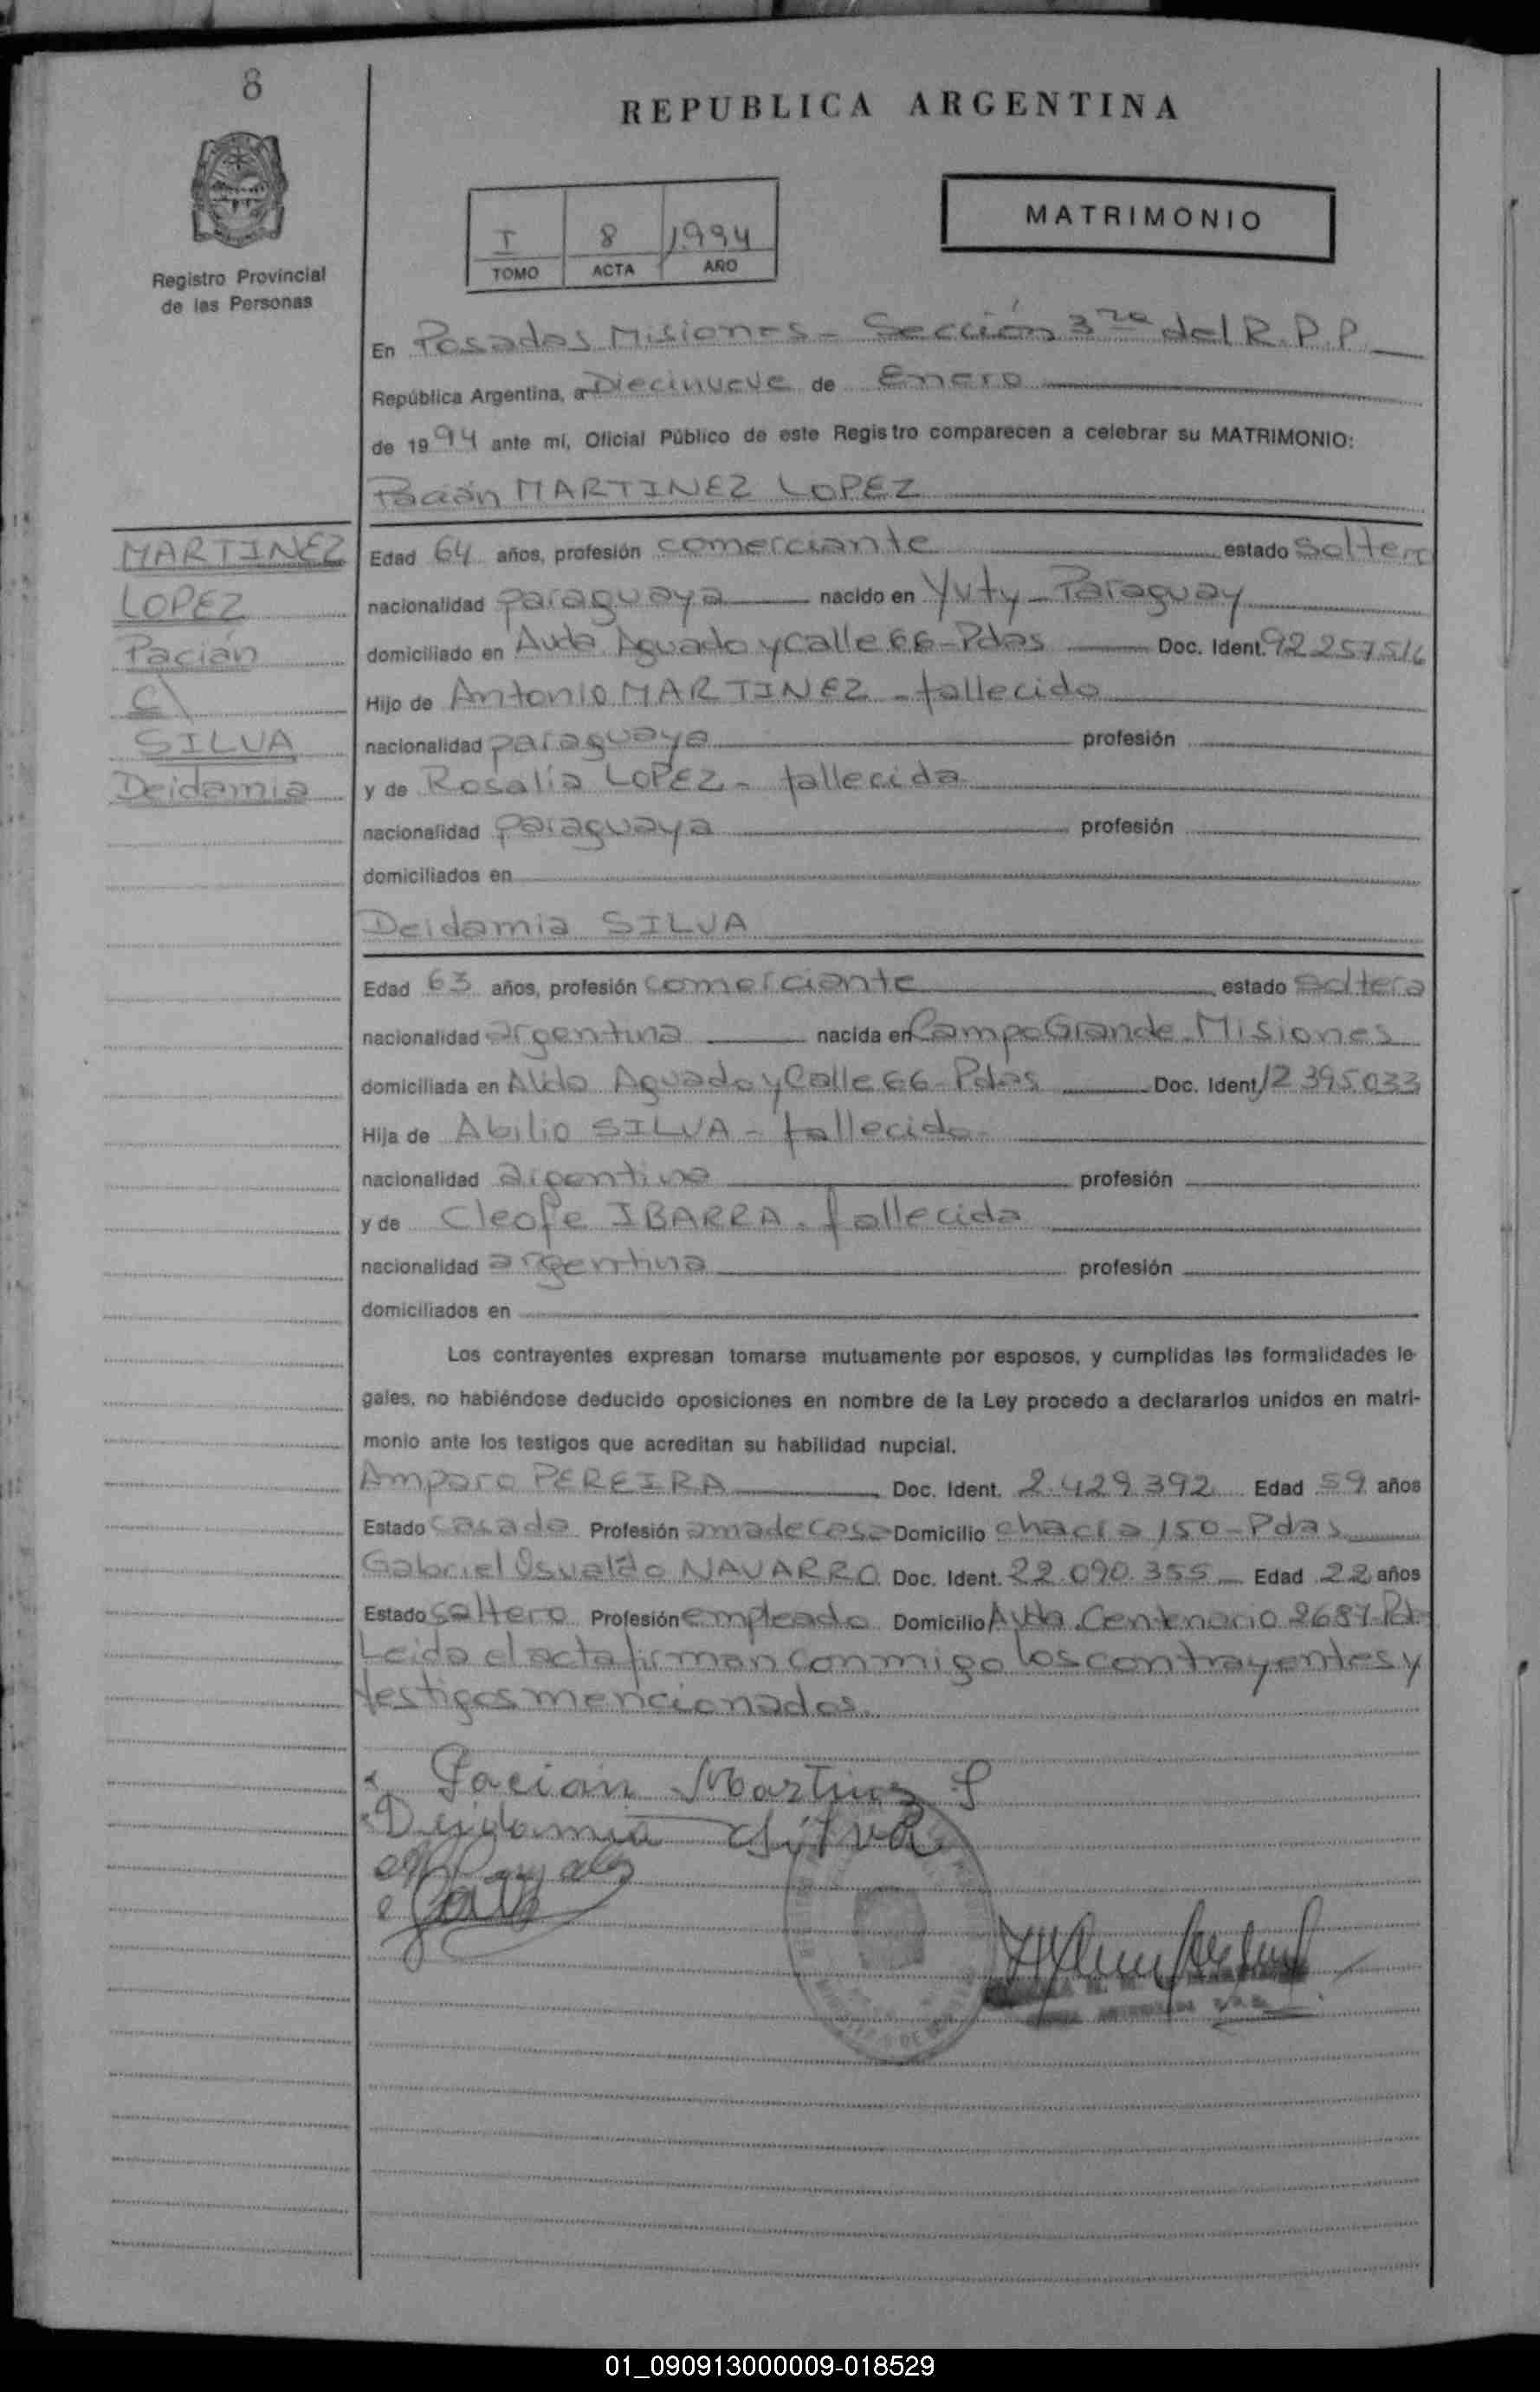 8
REPUBLICA ARGENTINA
MATRIMONIO
I 8 1994
TOMO ACTA AÑO
Registro Provincial
de las Personas
En Posadas Misiones - Sección 3ra del R.P.P.
República Argentina, a Diecinueve de Enero
de 1994 ante mí, Oficial Público de este Registro comparecen a celebrar su MATRIMONIO:
Pacián MARTINEZ LOPEZ
MARTINEZ
LOPEZ
Pacián
c\
SILVA
Deidamia
Edad 64 años, profesión comerciante estado soltero
nacionalidad paraguaya nacido en Yuty - Paraguay
domiciliado en Avda Aguado y Calle 66 - Pdas Doc. Ident. 92 257 516
Hijo de Antonio MARTINEZ - fallecido
nacionalidad paraguaya profesión
y de Rosalía LOPEZ - fallecida
nacionalidad paraguaya profesión
domiciliados en
Deidamia SILVA
Edad 63 años, profesión comerciante estado soltera
nacionalidad argentina nacida en Campo Grande - Misiones
domiciliada en Avda Aguado y Calle 66 - Pdas Doc. Ident. 12 395.033
Hija de Abilio SILVA - fallecido
nacionalidad argentina profesión
y de Cleofe IBARRA - fallecida
nacionalidad argentina profesión
domiciliados en
Los contrayentes expresan tomarse mutuamente por esposos, y cumplidas las formalidades le-
gales, no habiéndose deducido oposiciones en nombre de la Ley procedo a declararlos unidos en matri-
monio ante los testigos que acreditan su habilidad nupcial.
Amparo PEREIRA Doc. Ident. 2.429.392 Edad 59 años
Estado casada Profesión ama de casa Domicilio chacra 150 - Pdas
Gabriel Osvaldo NAVARRO Doc. Ident. 22.090.355 Edad 22 años
Estado soltero Profesión empleado Domicilio Avda. Centenario 2687 - Pd
Leída el acta firman conmigo los contrayentes y
testigos mencionados.
Pacian Martinez
Deidamia Silva
01_090913000009-018529